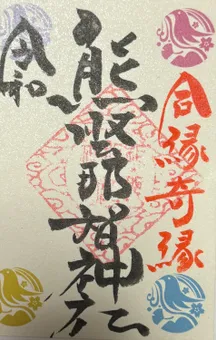 合縁奇縁
熊野那智神社
令和